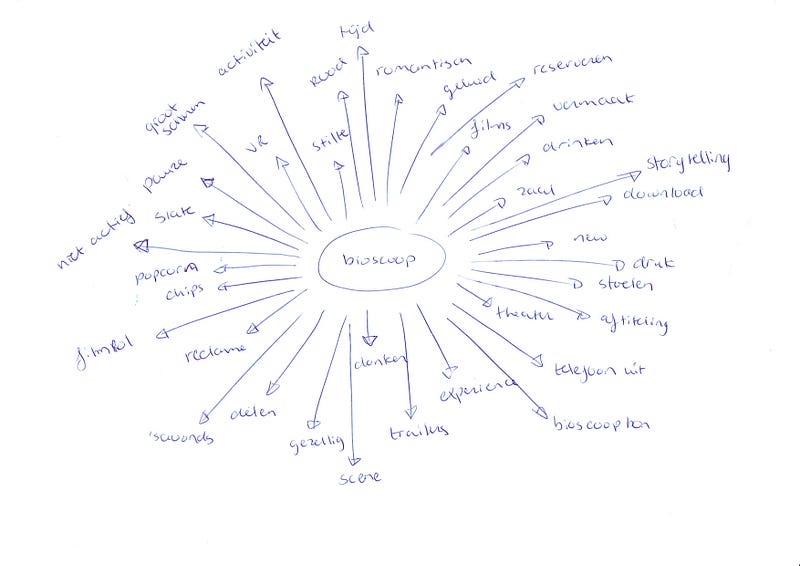 tijd
activiteit
rood
romantisch
geluid
reserveren
groot
scherm
VR
stilte
films
vermaak
drinken
pauze
zaal
storytelling
download
slate
niet actief
bioscoop
new
popcorn
druk
chips
stoelen
theater
aftiteling
filmrol
reclame
donker
telefoon uit
experience
delen
's avonds
gezellig
trailers
bioscoopbon
scene